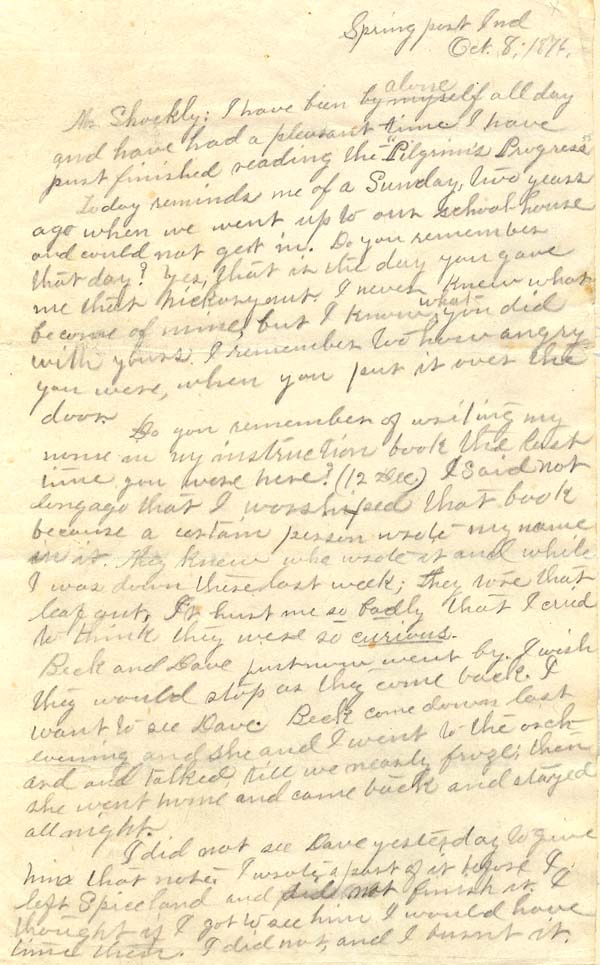 Springport Ind
Oct. 8, 1876.
Mr Shockly: I have been by alone myself all day
and have had a pleasant time I have
just finished reading the "Pilgrim's Progress"
Today reminds me of a Sunday, two years
ago when we went up to our school house
and could not get in. Do you remember
that day? Yes, that is the day you gave
me that hickorynut. I never knew what
become of mine, but I know what you did
with yours. I remember too how angry
you were, when you put it over the
door.
Do you remember of writing my
name in my instruction book the last
time you were here? (12 Dec.) I said not
long ago that I worshiped that book
because a certain person wrote my name
in it. They knew who wrote it and while
I was down there last week; they tore that
leaf out, It hurt me so badly that I cried
to think they were so curious.
Beck and Dave just now went by. I wish
they would stop as they come back. I
want to see Dave. Beck come down last
evening and she and I went to the orch
ard and talked till we nearly froze; then
she went home and came back and stayed
all night.
I did not see Dave yesterday to give
him that note; I wrote a part of it before I
left Spiceland and did not finish it. I
thought if I got to see him I would have
time then. I did not, and I burnt it.